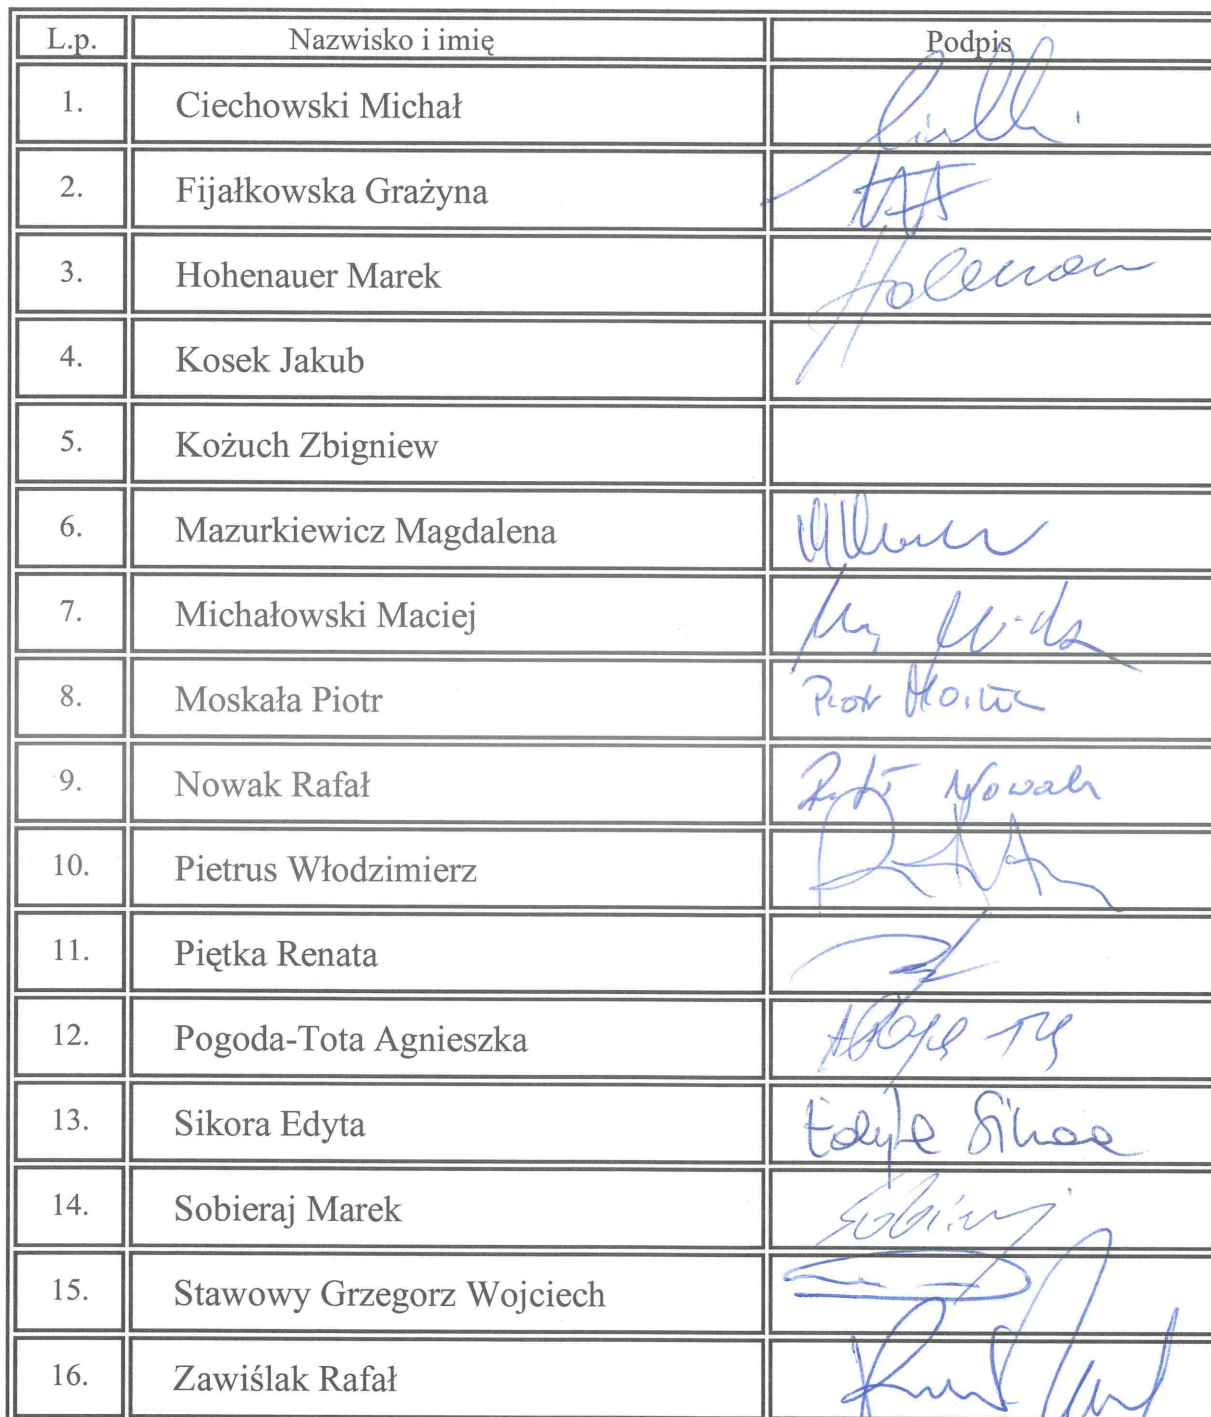 L.p. Nazwisko i imię Podpis
1. Ciechowski Michał
2. Fijałkowska Grażyna
3. Hohenauer Marek
4. Kosek Jakub
5. Kożuch Zbigniew
6. Mazurkiewicz Magdalena
7. Michałowski Maciej
8. Moskała Piotr Piotr
9. Nowak Rafał Nowak
10. Pietrus Włodzimierz
11. Piętka Renata
12. Pogoda-Tota Agnieszka
13. Sikora Edyta Edyta Sikora
14. Sobieraj Marek Sobieraj
15. Stawowy Grzegorz Wojciech
16. Zawiślak Rafał